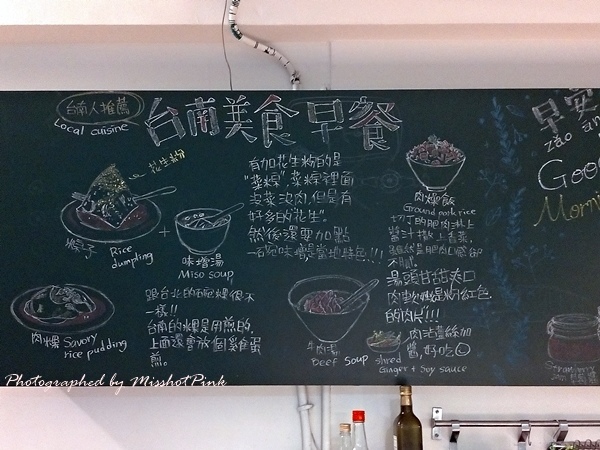 台南人推薦
Local cuisine
台南美食早餐
花生粉
粽子 Rice
dumpling
+
味增湯
Miso soup
有加花生粉的是
"菜粽", 菜粽裡面
沒菜沒肉, 但是有
好多的"花生".
然後還要加點
一碗味噌是當地特色!!!
肉燥飯
Ground pork rice
切丁的肥肉淋上
醬汁
不膩.
跟台北的碗粿很不
一樣!!
台南的粿是用煎的.
上面還會放個雞蛋
煎.
肉粿 Savory
rice pudding
牛肉湯
Beef soup
湯頭甘甜爽口
肉軟嫩是粉紅色
的肉片!!!
肉沾薑絲加
醬, 好吃☺
shred
Ginger + Soy sauce
早安
zǎo an
Goo
Morni
Strawberry
Photographed by MisshotPink